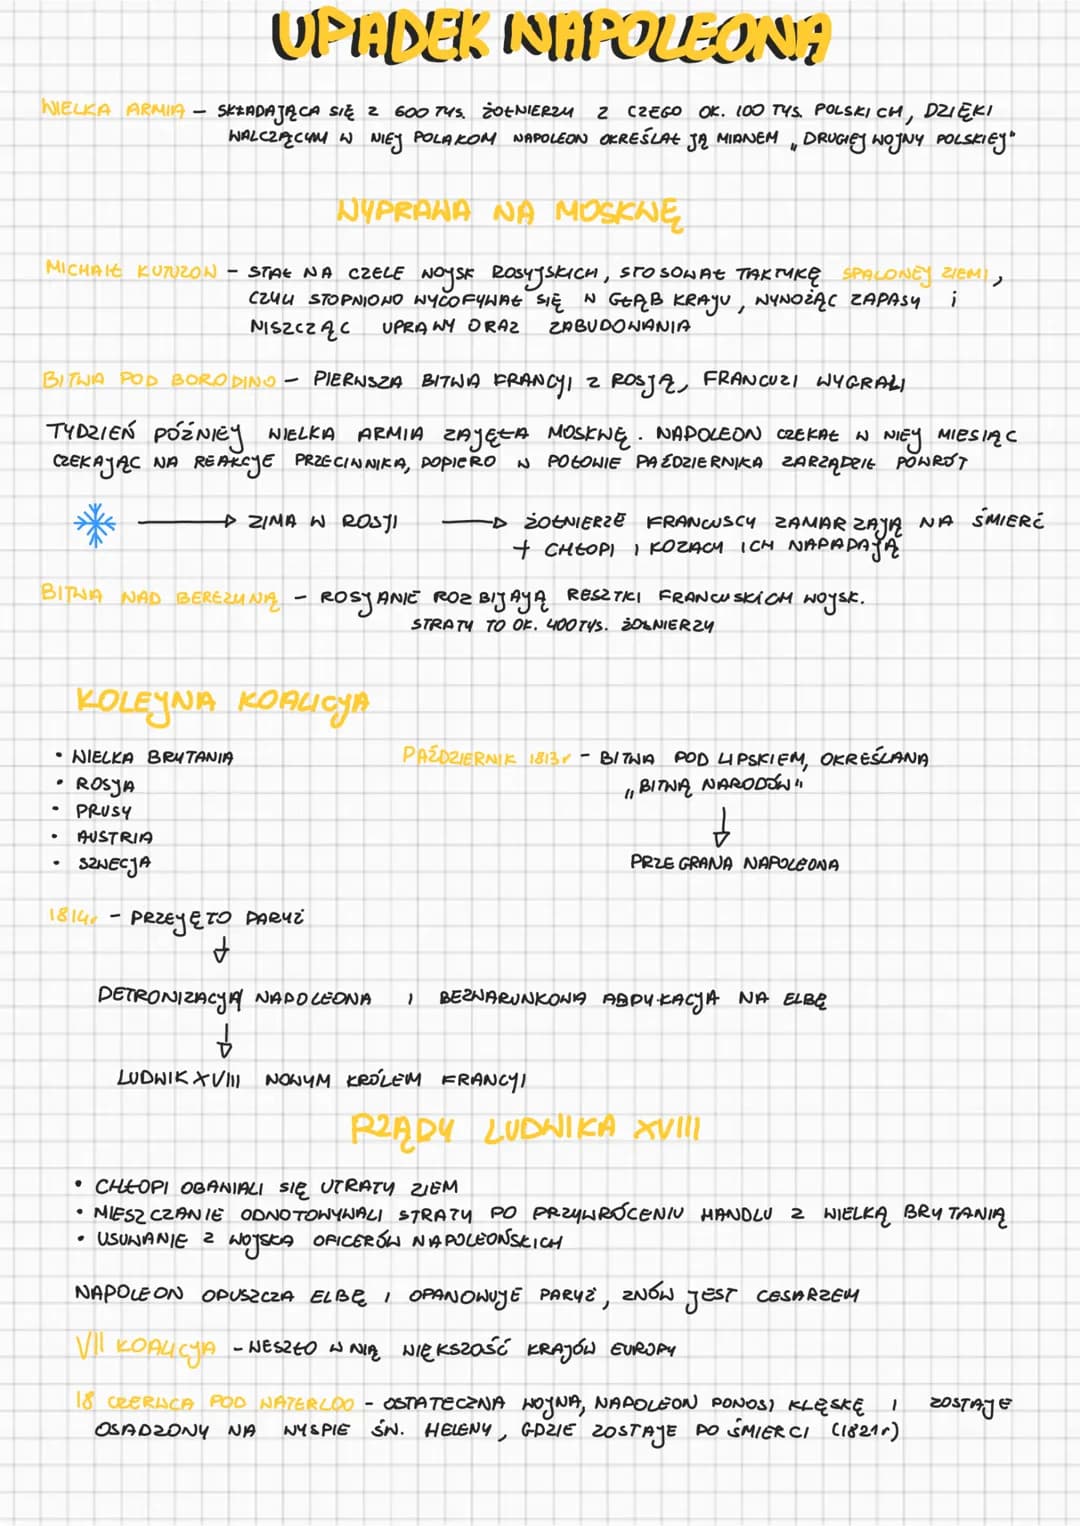 UPADEK NAPOLEONA
WIELKA ARMIA – SKŁADAJĄCA SIĘ Z 600 TYS. ŻOŁNIERZY Z CZEGO OK. 100 TYS. POLSKICH, DZIĘKI
WALCZĄCYM W NIEJ POLAKOM NAPOLEON OKREŚLAŁ JĄ MIANEM „DRUGIEJ WOJNY POLSKIEJ"
WYPRAWA NA MOSKWĘ
MICHAIŁ KUTUZOW – STAŁ NA CZELE WOJSK ROSYJSKICH, STOSOWAŁ TAKTYKĘ SPALONEJ ZIEMI,
CZYLI STOPNIOWO WYCOFYWAŁ SIĘ W GŁĄB KRAJU, WYNOŻĄC ZAPASY i
NISZCZĄC UPRAWY ORAZ ZABUDOWANIA
BITWA POD BORODINO – PIERWSZA BITWA FRANCJI Z ROSJĄ, FRANCUZI WYGRALI
TYDZIEŃ PÓŹNIEJ WIELKA ARMIA ZAJĘŁA MOSKWĘ. NAPOLEON CZEKAŁ W NIEJ MIESIĄC
CZEKAJĄC NA REAKCJE PRZECIWNIKA, DOPIERO W POŁOWIE PAŹDZIERNIKA ZARZĄDZIŁ POWRÓT
→ ZIMA W ROSJI → ŻOŁNIERZE FRANCUSCY ZAMARZAJĄ NA ŚMIERĆ
+ CHŁOPI I KOZACY ICH NAPADAJĄ
BITWA NAD BEREZYNĄ – ROSJANIE ROZBIJAJĄ RESZTKI FRANCUSKICH WOJSK.
STRATY TO OK. 400TYS. ŻOŁNIERZY
KOLEJNA KOALICJA
• WIELKA BRYTANIA
PAŹDZIERNIK 1813r – BITWA POD LIPSKIEM, OKREŚLANA
• ROSJA
„BITWĄ NARODÓW"
• PRUSY
• AUSTRIA
• SZWECJA
PRZEGRANA NAPOLEONA
1814r – PRZEJĘTO PARYŻ
DETRONIZACJA NAPOLEONA I BEZWARUNKOWA ABDYKACJA NA ELBĘ
LUDWIK XVIII NOWYM KRÓLEM FRANCJI
RZĄDY LUDWIKA XVIII
• CHŁOPI OBAWIALI SIĘ UTRATY ZIEM
• MIESZCZANIE ODNOTOWYWALI STRATY PO PRZYWRÓCENIU HANDLU Z WIELKĄ BRYTANIĄ
• USUWANIE Z WOJSKA OFICERÓW NAPOLEOŃSKICH
NAPOLEON OPUSZCZA ELBĘ I OPANOWUJE PARYŻ, ZNÓW JEST CESARZEM
VII KOALICJA – WESZŁO W NIĄ WIĘKSZOŚĆ KRAJÓW EUROPY
18 CZERWCA POD WATERLOO – OSTATECZNA WOJNA, NAPOLEON PONOSI KLĘSKĘ I ZOSTAJE
OSADZONY NA WYSPIE ŚW. HELENY, GDZIE ZOSTAJE DO ŚMIERCI (1821r)